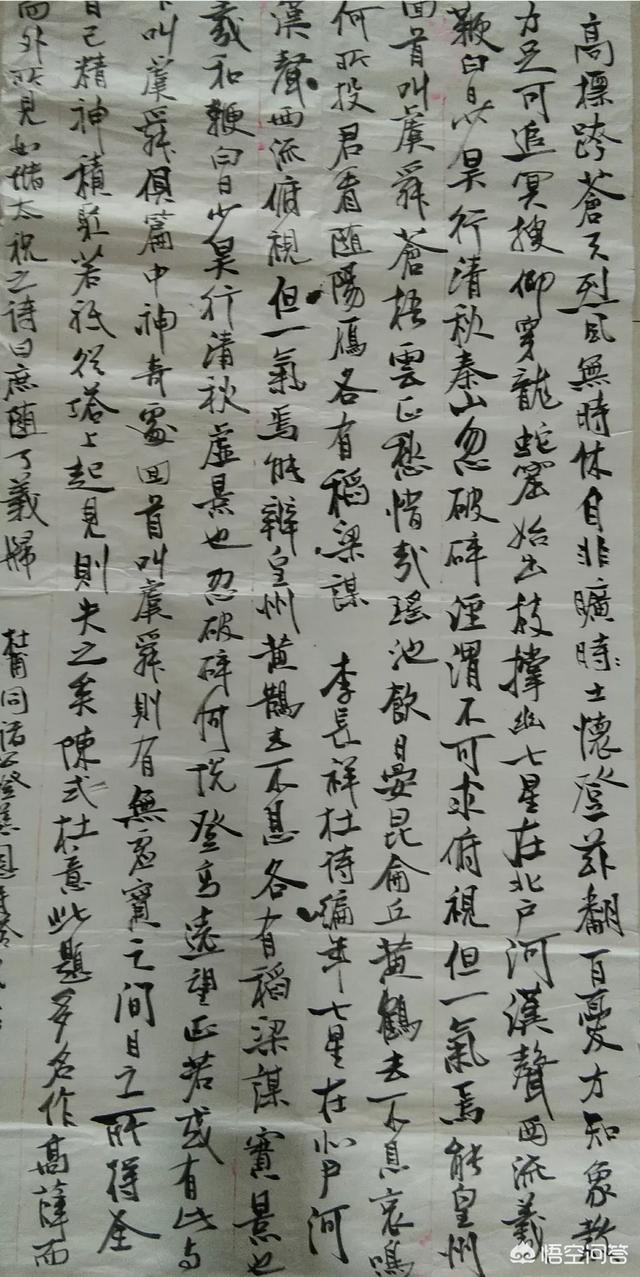 高標跨蒼天烈風無時休自非曠時士懷登茲翻百憂方知象教
力足可追冥搜仰穿龍蛇窟始出枝撐幽七星在北戶河漢聲西流羲
鞭白日少昊行清秋秦山忽破碎涇渭不可求俯視但一氣焉能皇州
回首叫虞舜蒼梧雲正愁惜哉瑤池飲日晏昆侖丘黃鶴去不息哀鳴
何所投君看隨陽雁各有稻粱謀 李長祥杜詩編年七星在北戶河
漢聲西流俯視但一氣焉能辨皇州黃鵠去不息各有稻粱謀實景也
羲和鞭白日少昊行清秋虛景也忽破碎何悅登高遠望正若或有此与
叫虞舜俱篇中神奇處回首叫虞舜則有無虛實之間目之所得全
自己精神積聚若祇從塔上起見則失之矣陳式杜意此題多名作高薛而
而外所見如儲太祝之詩曰庶隨了義歸
杜甫同諸公登慈恩寺塔
悟空问答